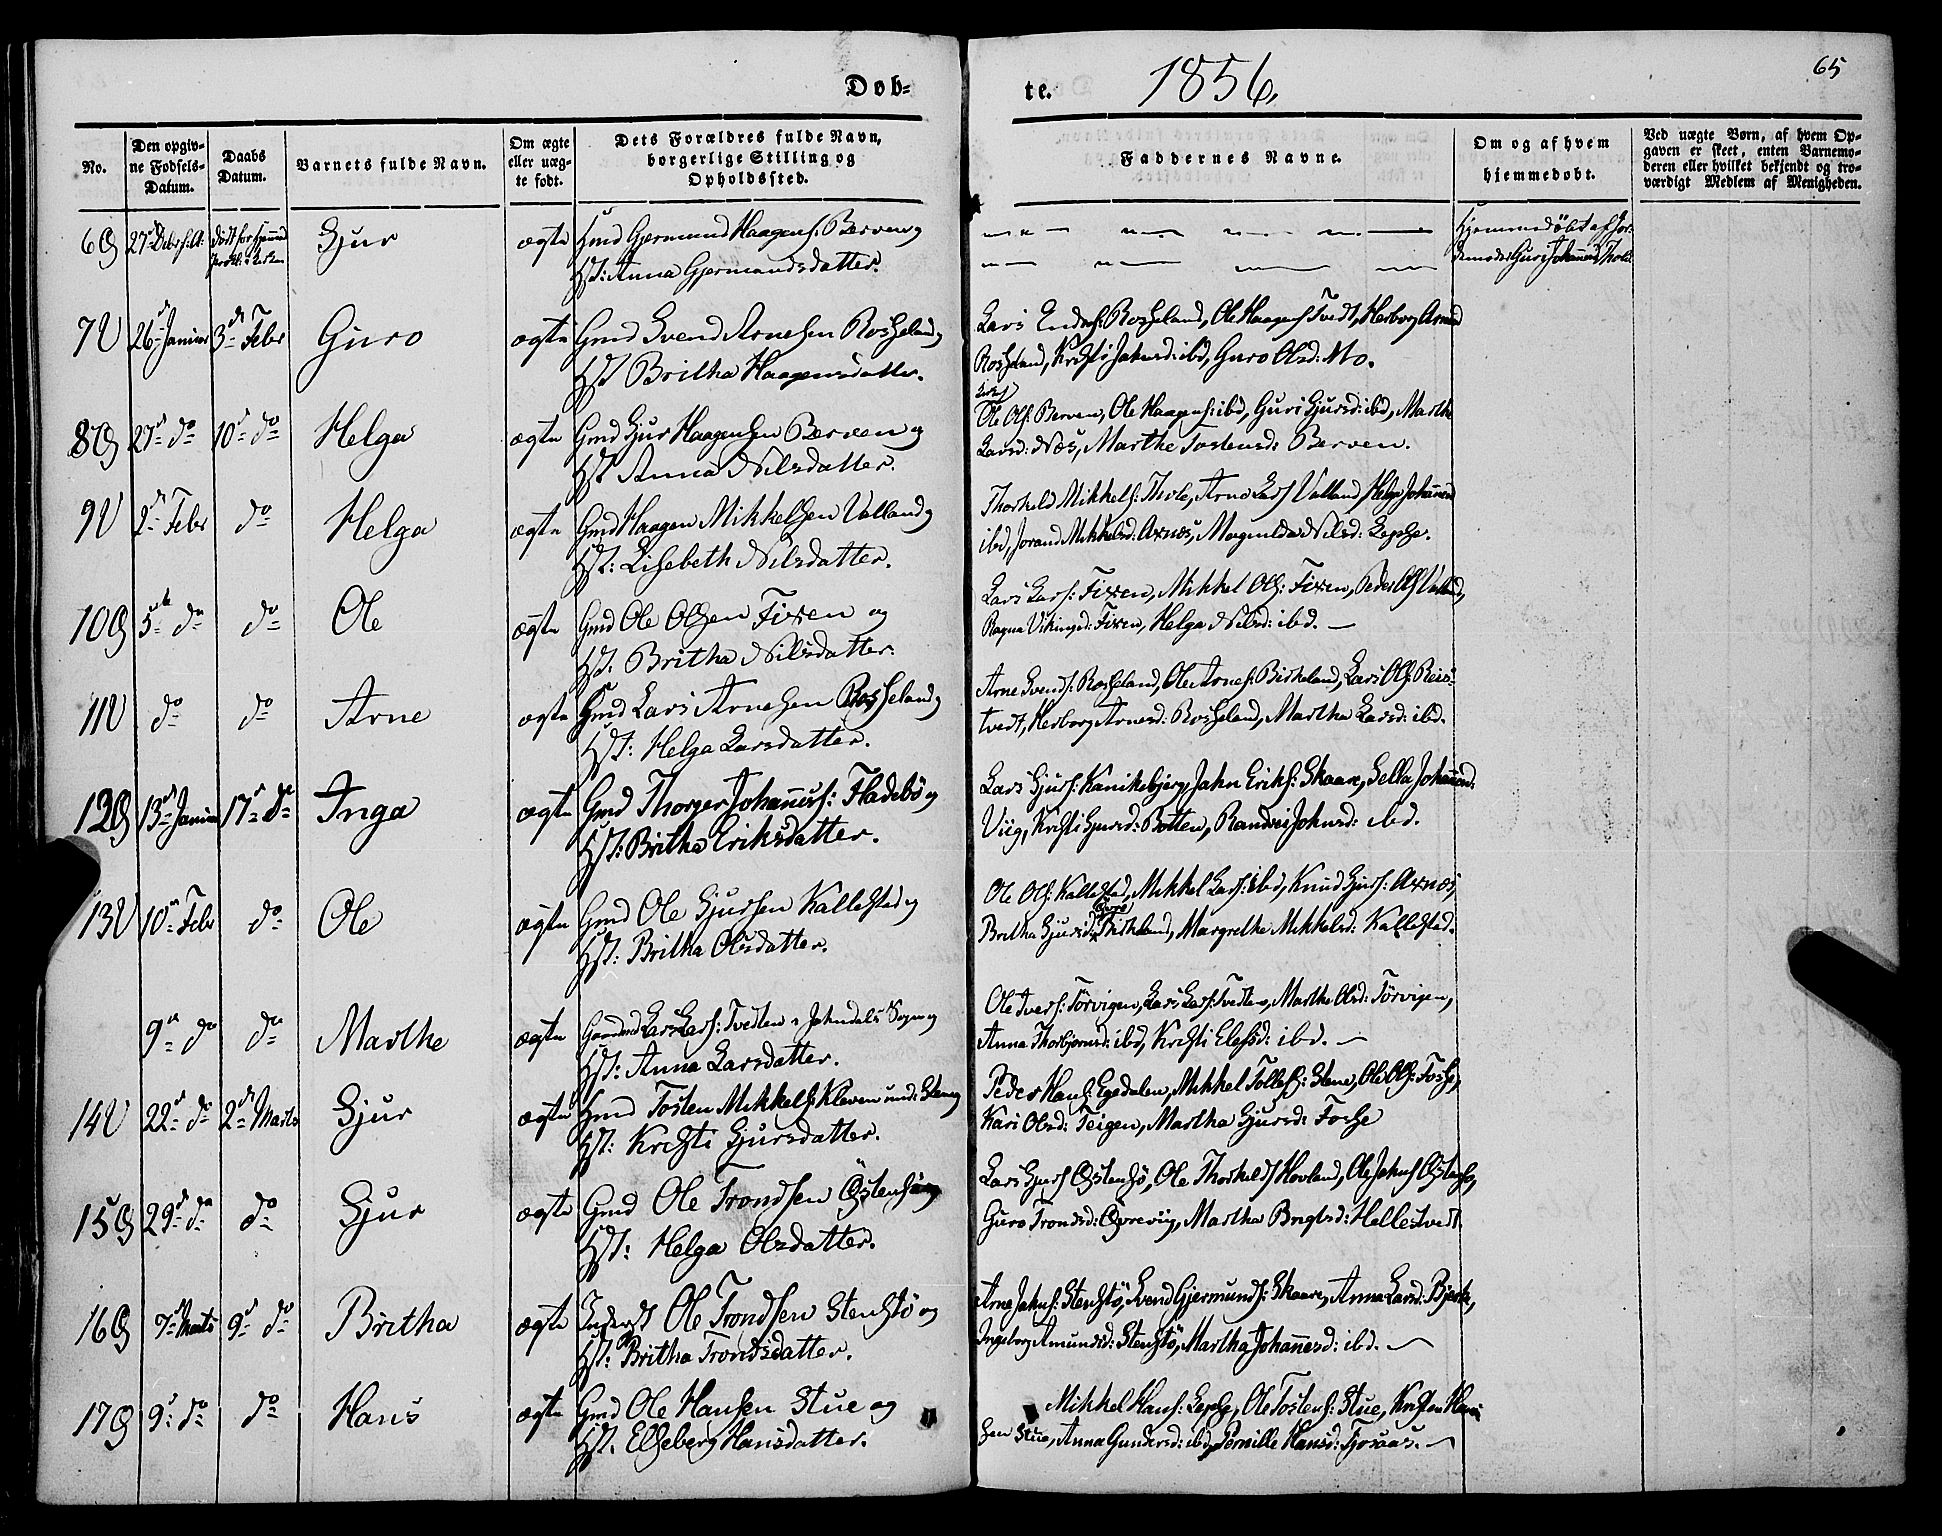 Døb-
te.
1856,
65
No.
Den opgiv-
ne Fødsels-
Datum.
Daabs
Datum.
Barnets fulde Navn.
Om ægte
eller uæg-
te født.
Dets Forældres fulde Navn,
borgerlige Stilling og
Opholdssted.
Faddernes Navne.
Om og af hvem
hjemmedøbt.
Ved uægte Børn, af hvem Op-
gaven er skeet, enten Barnemo-
deren eller hvilket bekjendt og tro-
værdigt Medlem af Menigheden.
6 Sjur ægte Hmd Gjermund Haagens: Berven og
Hst: Anna Gjermundsdatter.
Hjemmedøbt af Jor-
demoder Guri
7 26 Januar 3 Febr Guro ægte Gmd Svend Arnesen Rosseland og
Hst Britha Haagensdatter.
Lars Endres: Rosseland, Ole Haagens Tvedt, Herborg Arnesd
Rosseland, Kristi Jakusd: ibd, Guro Olsd: Mo.
8 27 do 10 do Helga ægte Gmd Sjur Haagensen Berven og
Hst Anna Nilsdatter.
Ole Ols: Berven, Ole Haagens: ibd, Guri Sjursd: ibd, Marthe
Larsd: Næs, Marthe Tostensd: Berven.
9 2 Febr do Helga ægte Gmd Haagen Mikkelsen Valland og
Hst: Lisebeth Nilsdatter.
Thorkeld Mikkels: Thole, Arne Lars Valland, Helga Johannesd
ibd, Jorand Mikkelsd: Axnæs, Nilsd: Lepsøe.
10 5 do do Ole ægte Gmd Ole Olsen Fixen og
Hst: Britha Nilsdatter.
Lars Lars: Fixen, Mikkel Ols: Fixen, Peder Ols Valland,
Ragna Vikingsd: Fixen, Helga Nilsd: ibd.
11 do do Arne ægte Gmd Lars Arnesen Rosseland og
Hst: Helga Larsdatter.
Arne Svends: Rosseland, Ole Arnes: Birkeland, Lars Ols: Reis-
tvedt, Herborg Arnesd: Rosseland, Martha Larsd: ibd.
12 13 Januar 17 do Inga ægte Gmd Thorger Johannes: Fladebø og
Hst: Britha Eriksdatter.
Lars Sjurs: Kanikebjerg, Jahn Eriks: Skaare, Sella Johannesd:
Viig, Kristi Sjursd: Botten, Randvei Johnsd: ibd.
13 10 Febr do Ole ægte Gmd Ole Sjursen Kallestad og
Hst: Britha Olsdatter.
Ole Ols: Kallestad, Mikkel Lars: ibd, Knud Sjurs: Axnæs,
Britha Sjursd: Birkeland, Margrethe Mikkelsd: Kallestad.
9 do do Marthe ægte Gaardmd Lars Lars: Tvedten i Jondals Sogn og
Hst: Anna Larsdatter.
Ole Ivers: Tørvigen, Lars Lars: Tvedten, Marthe Olsd: Tørvigen,
Anna Thorbjørnsd: ibd, Kristi Elefsd: ibd.
14 22 do 2 Marts Sjur ægte Hmd Tosten Mikkels: Kleven und: Stene og
Hst: Kristi Sjursdatter.
Peder Hans: Egedalen, Mikkel Tollefs: Stene, Ole Ols: Fosse,
Kari Olsd: Teigen, Martha Sjursd: Fosse
15 29 do do Sjur ægte Gmd Ole Trondsen Østensø og
Hst: Helga Olsdatter.
Lars Sjurs Østensø, Ole Thorkelds Hovland, Ole Jakus Østensø,
Guro Trondsd: Øvreviig, Martha Brigtsd: Hellestvedt
16 7 Marts 9 do Britha ægte Inderst Ole Trondsen Stenstø og
Hst: Britha Trondsdatter.
Arne Jakus: Stenstø, Svend Gjermunds: Skaare, Anna Larsd: Bjerke,
Ingeborg Amundsd: Stenstø, Martha Johannesd: ibd.
17 9 do do Hans ægte Gmd Ole Hansen Stue og
Hst: Elseberg Hansdatter.
Mikkel Hans: Lepsøe, Ole Tostens: Stue, Kristen Han-
sen Stue, Anna Gundersd: ibd, Pernille Hansd: Fosaas.